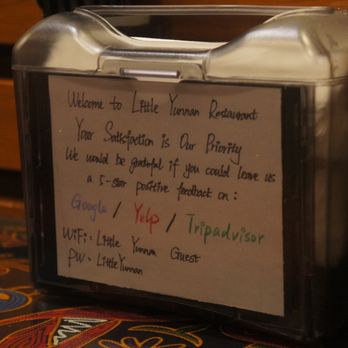 Welcome to Little Yunnan Restaurant
Your Satisfaction is Our Priority
We would be grateful if you could leave us
a 5-star positive feedback on :
Google / Yelp / Tripadvisor
WiFi = Little Yunnan Guest
PW = LittleYunnan